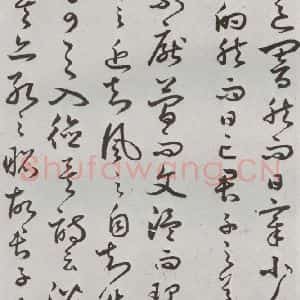 道闇然而日章小人
的然而日亡君子之道
不厭簡而文溫而理
之近知風之自知微
可与入德矣詩云潛
矣亦孔之昭故君子
Shufawang.CN